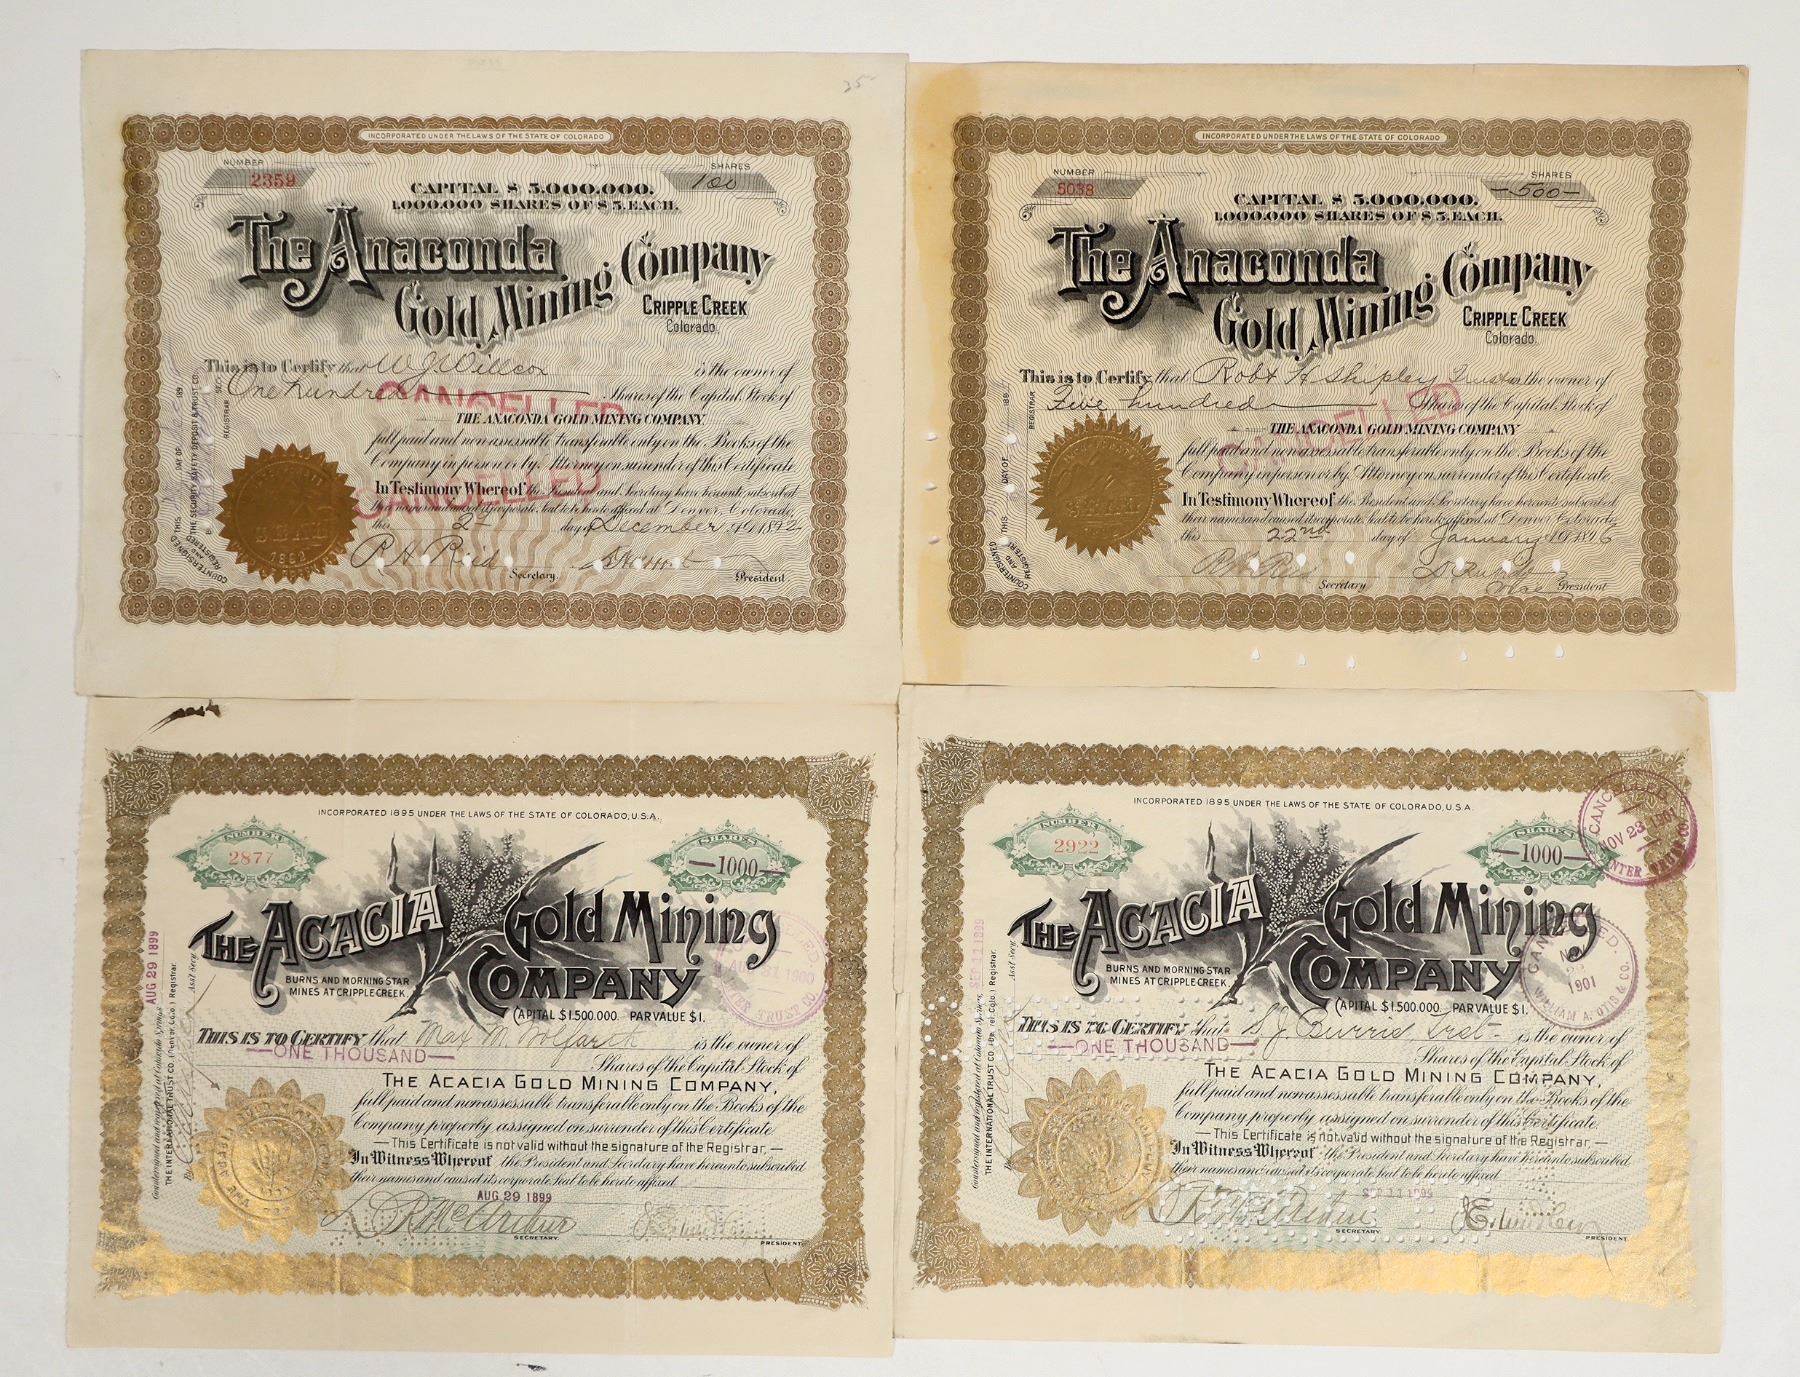 35-
INCORPORATED UNDER THE LAWS OF THE STATE OF COLORADO
NUMBER
2359
SHARES
100
CAPITAL $ 5.000.000.
1.000.000 SHARES OF $ 5. EACH.
The Anaconda
Gold Mining Company
CRIPPLE CREEK
Colorado.
This is to Certify that W J Willcox is the owner of
One hundred Shares of the Capital Stock of
CANCELLED
THE ANACONDA GOLD MINING COMPANY.
full paid and non-assessable transferable only on the Books of the
Company in person or by Attorney on surrender of this Certificate
CANCELLED
In Testimony Whereof the President and Secretary have hereunto subscribed
their names and caused its corporate Seal to be hereto affixed at Denver, Colorado,
this day of December AD 1892
R H Reid Secretary. President
SEAL
1892
COUNTERSIGNED AND REGISTERED THIS DAY OF 189
THE SECURITY SAFETY DEPOSIT & TRUST CO.
REGISTRAR SEC'Y
INCORPORATED UNDER THE LAWS OF THE STATE OF COLORADO
NUMBER
5038
SHARES
-500-
CAPITAL $ 5.000.000.
1.000.000 SHARES OF $ 5. EACH.
The Anaconda
Gold Mining Company
CRIPPLE CREEK
Colorado.
This is to Certify that Robt H Shipley Trustee is the owner of
Five hundred Shares of the Capital Stock of
CANCELLED
THE ANACONDA GOLD MINING COMPANY
full paid and non-assessable transferable only on the Books of the
Company in person or by Attorney on surrender of this Certificate
In Testimony Whereof the President and Secretary have hereunto subscribed
their names and caused its corporate Seal to be hereto affixed at Denver, Colorado,
this 22nd day of January AD 1896
R H Reid Secretary President
COUNTERSIGNED AND REGISTERED THIS DAY OF 189
REGISTRAR
INCORPORATED 1895 UNDER THE LAWS OF THE STATE OF COLORADO, U.S.A.
NUMBER
2877
SHARES
—1000—
THE ACACIA Gold Mining
COMPANY
BURNS AND MORNING STAR
MINES AT CRIPPLE CREEK.
CAPITAL $1.500.000. PAR VALUE $1.
THIS IS TO CERTIFY that Max M. Wolfarth is the owner of
—ONE THOUSAND—
Shares of the Capital Stock of
THE ACACIA GOLD MINING COMPANY,
full paid and nonassessable transferable only on the Books of the
Company properly assigned on surrender of this Certificate.
—This Certificate is not valid without the signature of the Registrar.—
In Witness Whereof the President and Secretary have hereinto subscribed
their names and caused its corporate Seal to be hereto affixed
AUG 29 1899
SECRETARY. PRESIDENT
AUG 29 1899
Countersigned and registered at Colorado Springs
THE INTERNATIONAL TRUST CO. (Denver Colo.) Registrar.
By Asst Secy.
INCORPORATED 1895 UNDER THE LAWS OF THE STATE OF COLORADO, U.S.A.
NUMBER
2922
SHARES
—1000—
CANCELLED
NOV 23 1901
INTER TRUST CO.
THE ACACIA Gold Mining
COMPANY
BURNS AND MORNING STAR
MINES AT CRIPPLE CREEK.
CAPITAL $1.500.000. PAR VALUE $1.
CANCELLED
1901
WILLIAM A. OTIS & CO.
THIS IS TO CERTIFY that is the owner of
—ONE THOUSAND—
Shares of the Capital Stock of
THE ACACIA GOLD MINING COMPANY,
full paid and nonassessable transferable only on the Books of the
Company properly assigned on surrender of this Certificate.
—This Certificate is not valid without the signature of the Registrar.—
In Witness Whereof the President and Secretary have hereinto subscribed
their names and caused its corporate Seal to be hereto affixed
SEP 11 1899
SECRETARY. PRESIDENT
SEP 11 1899
Countersigned and registered at Colorado Springs
THE INTERNATIONAL TRUST CO. (Denver Colo.) Registrar.
By Asst Secy.